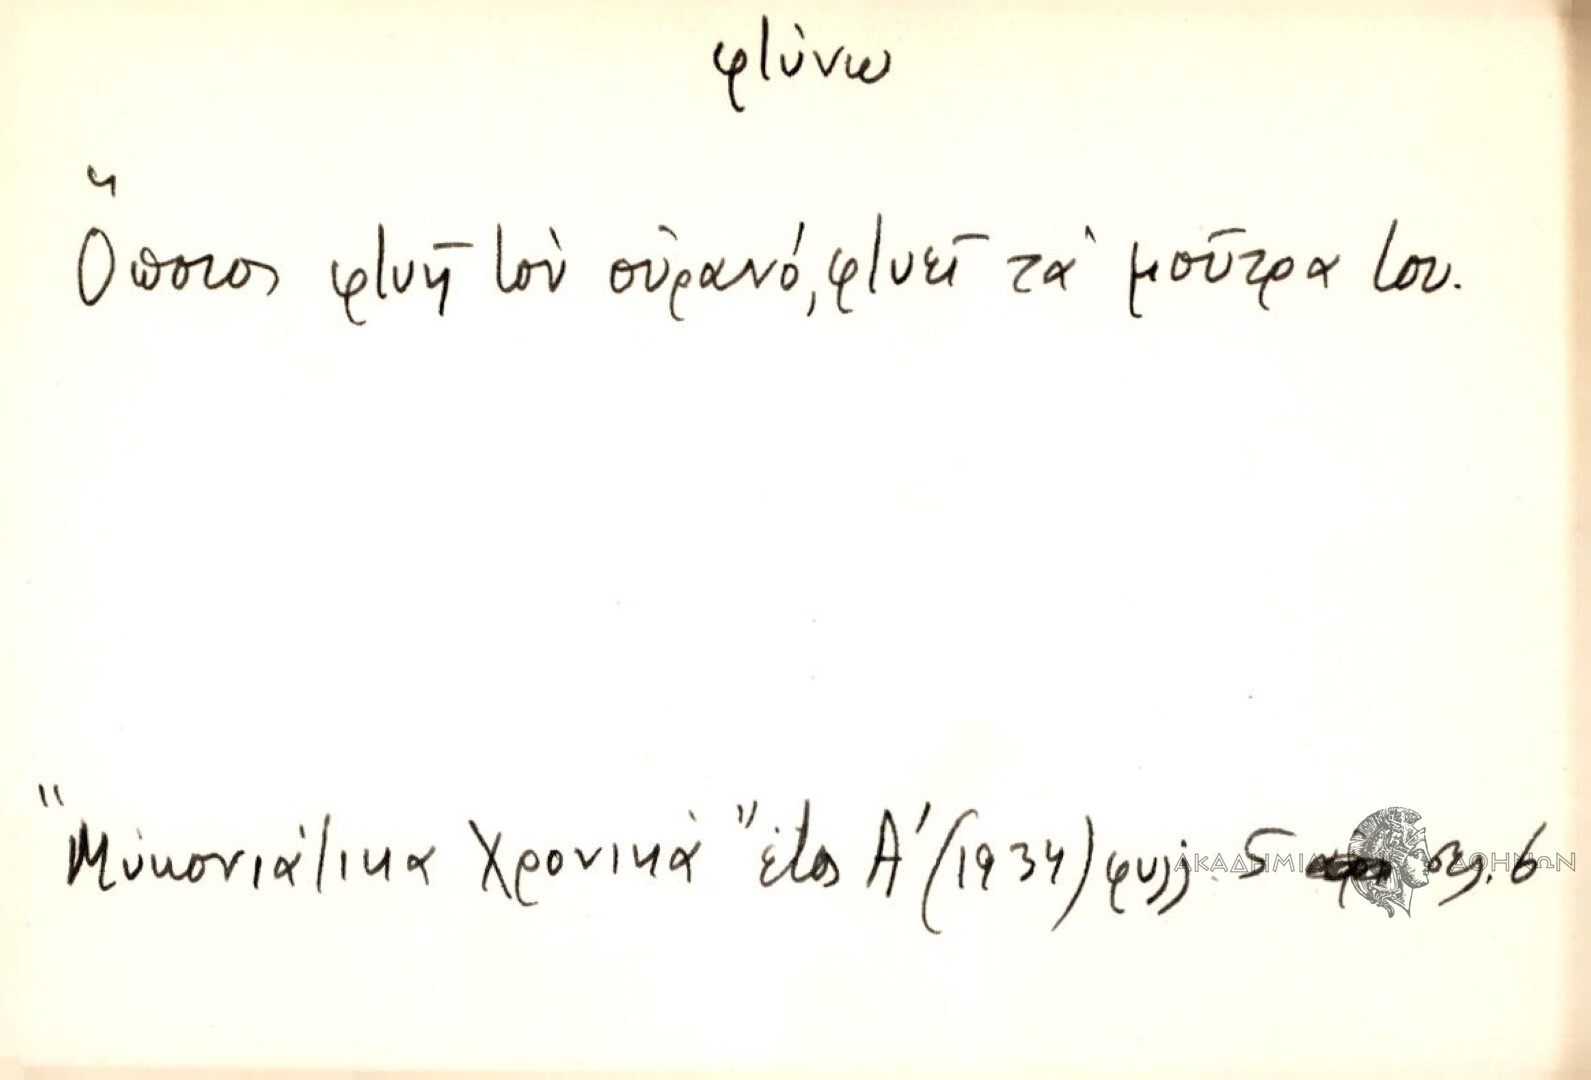 φτύνω
Ὅποιος φτυῇ τὸν οὐρανό, φτυεῖ τὰ μοῦτρα του.
"Μυκονιάτικα Χρονικά" ἔτος Α' (1934) φυλλ. 5 σελ. 6
ΑΚΑΔΗΜΙΑ ΑΘΗΝΩΝ